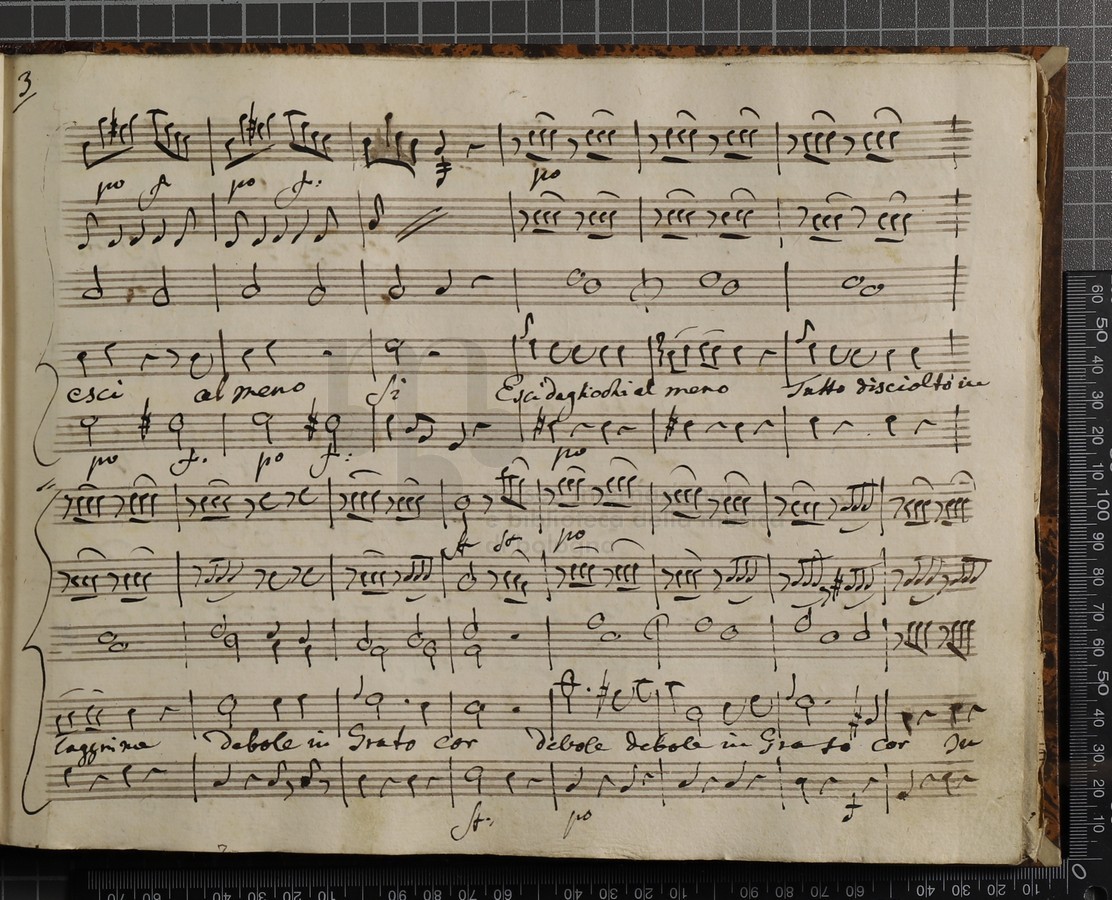 3
po f. po f: po
esci al meno Si Esci dagliochi al meno Tutto disciolto in
po f. po f: po
po
lagrime debole in Grato cor debole debole in Grato cor In
po